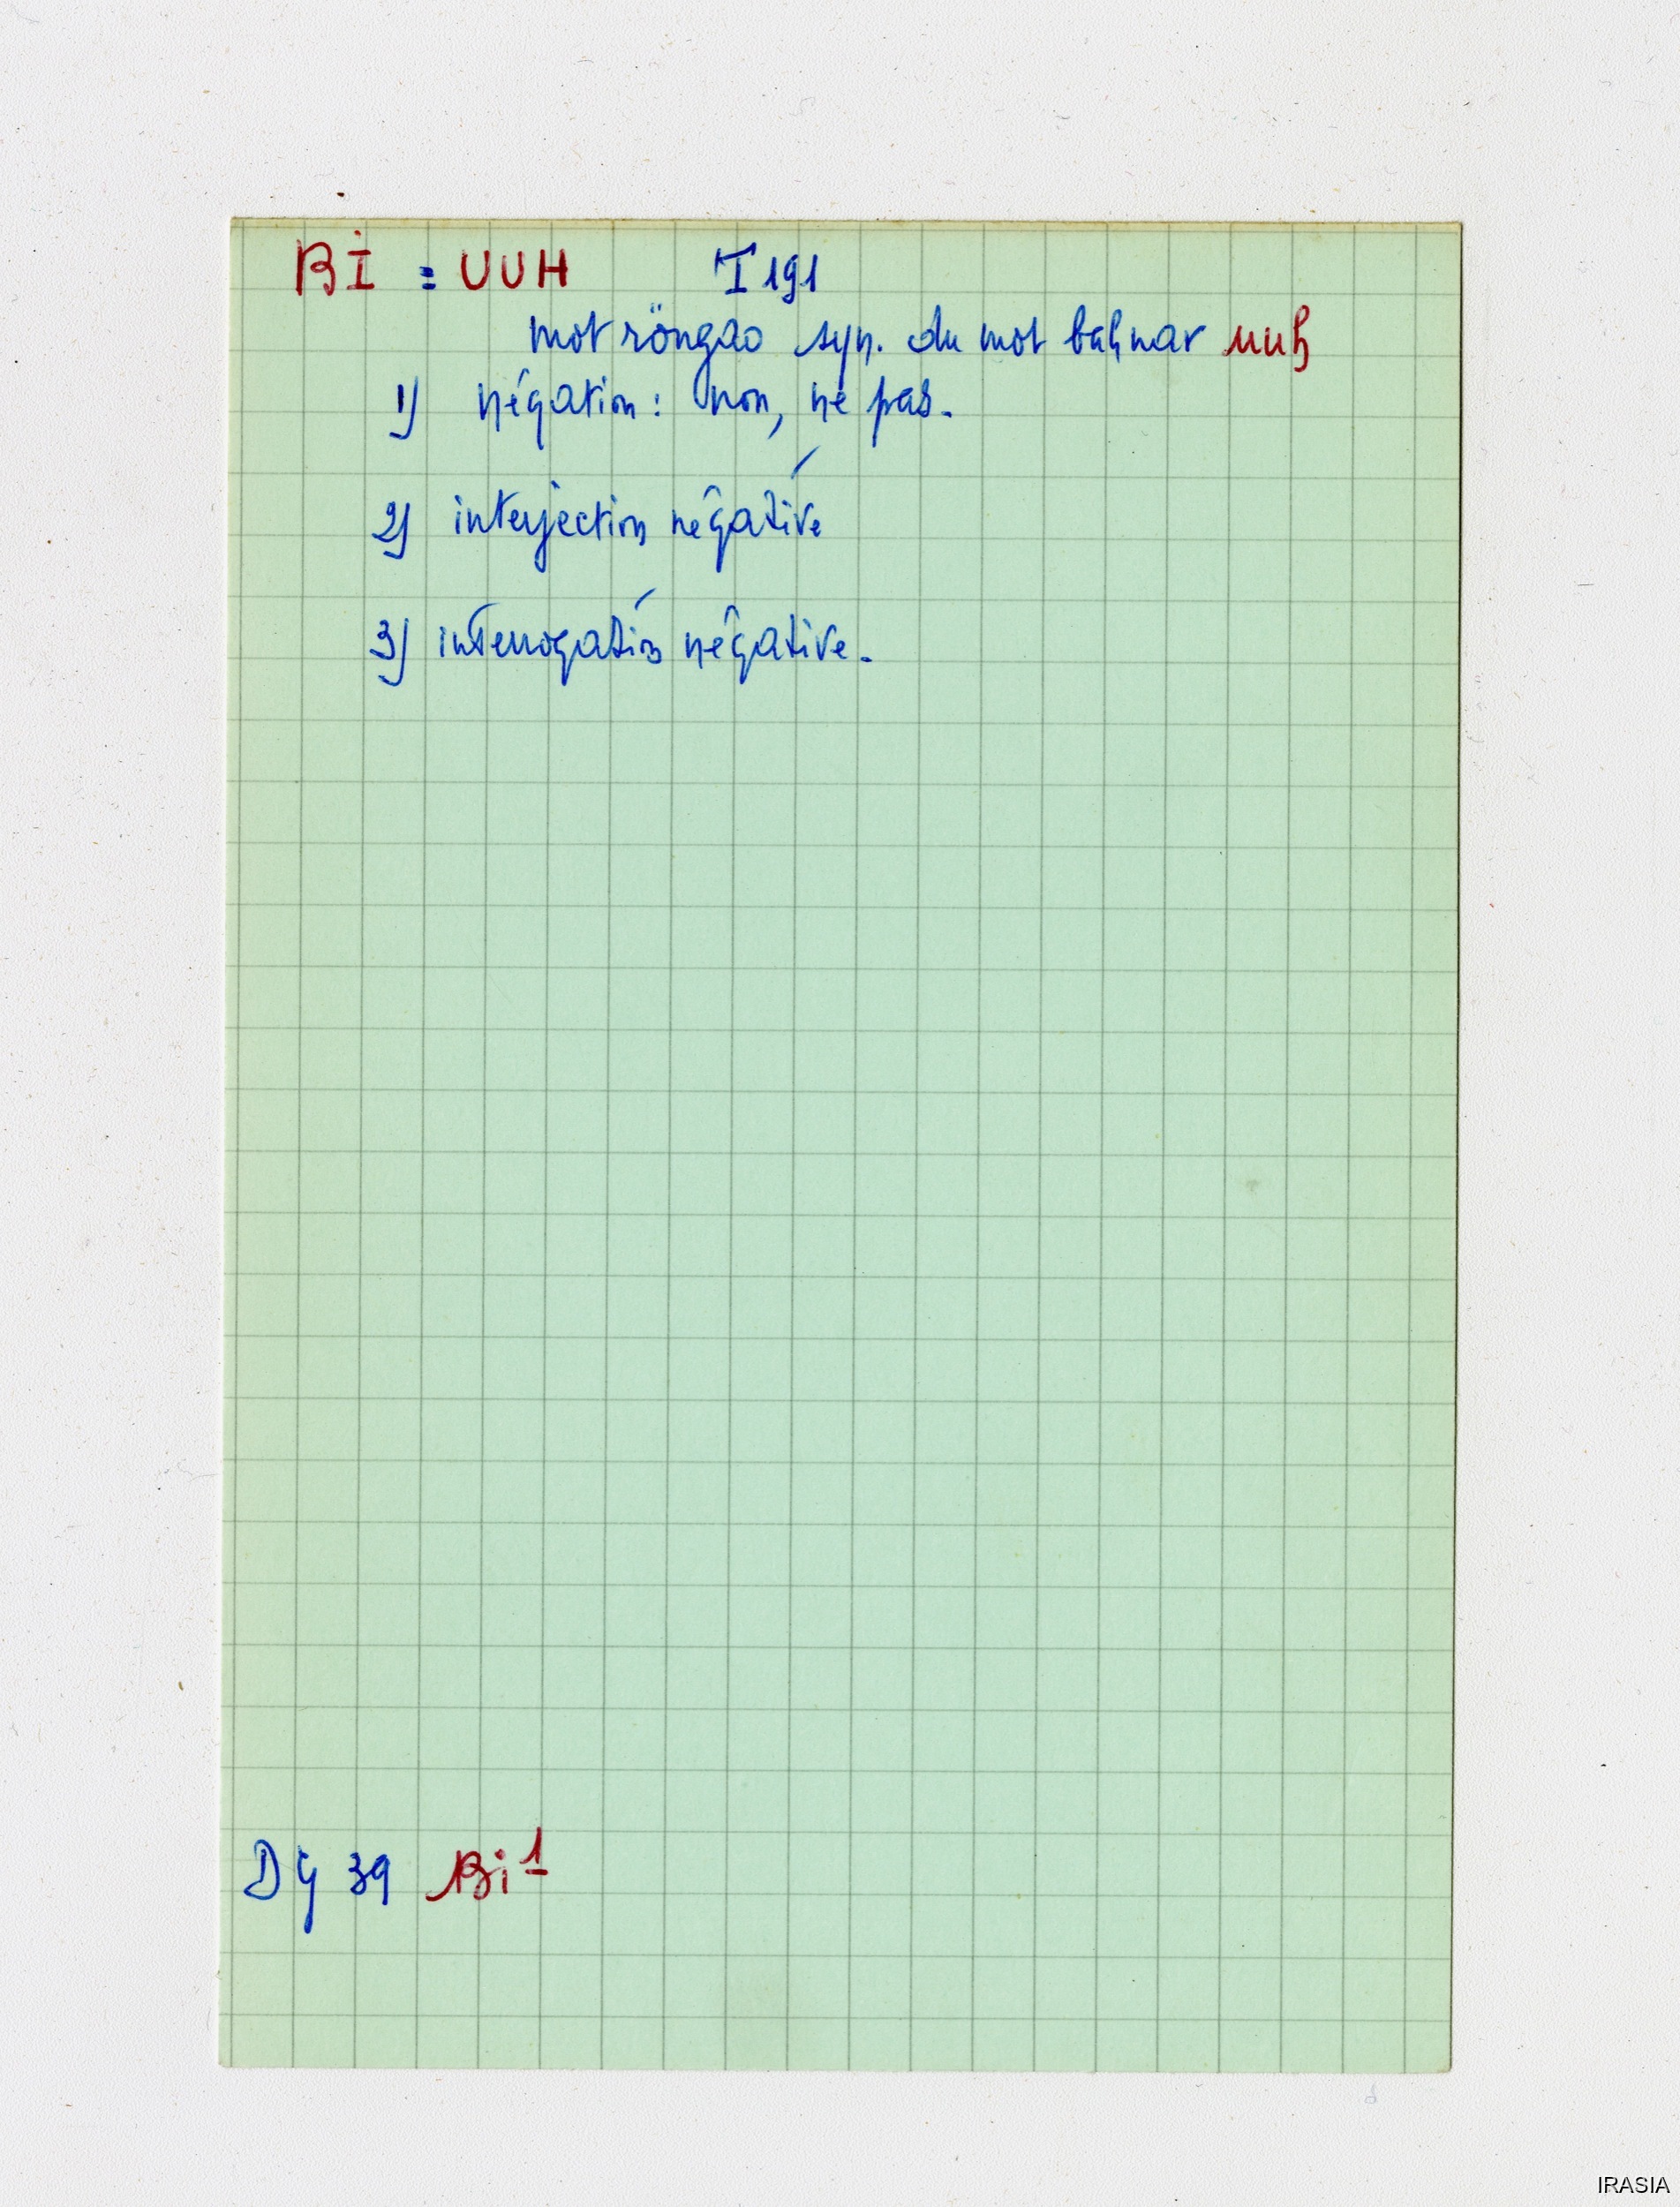 BI = UUH I 191
mot röngao syn. du mot bahnar uuh
1) négation : non, ne pas.
2) interjection négative
3) interrogation négative.
Dg 39 Bi 1
IRASIA